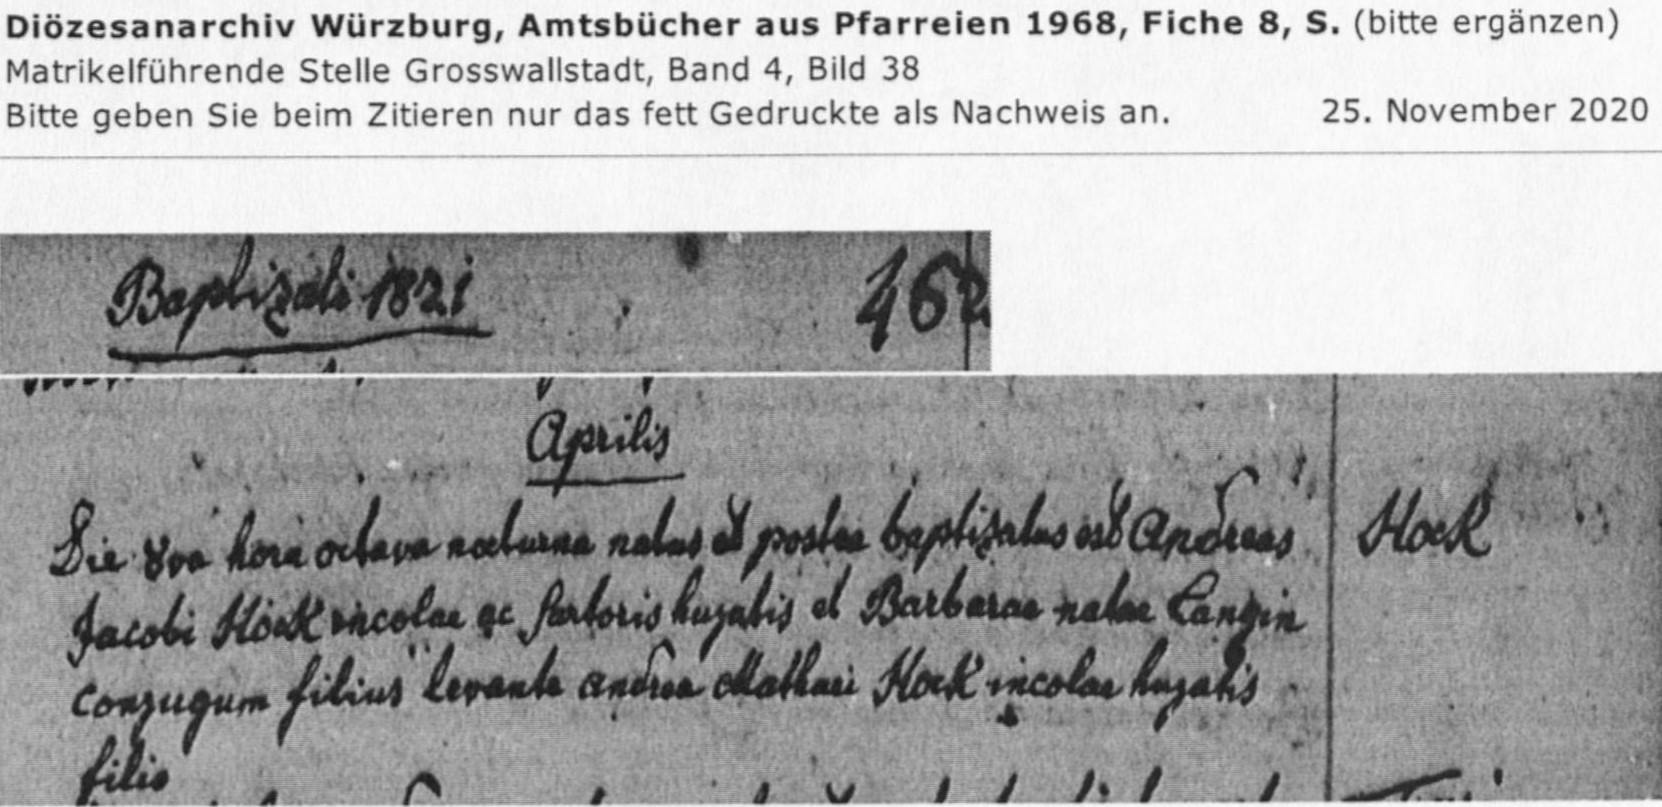 Diözesanarchiv Würzburg, Amtsbücher aus Pfarreien 1968, Fiche 8, S. (bitte ergänzen)
Matrikelführende Stelle Grosswallstadt, Band 4, Bild 38
Bitte geben Sie beim Zitieren nur das fett Gedruckte als Nachweis an. 25. November 2020
Baptizati 1821 462
Aprilis
Die 8va hora octava nocturna natus et postea baptizatus est Andreas Hock
Jacobi Hock incolae ac sartoris hujatis et Barbarae natae Langin
conjugum filius levante andrea Mathaei Hock incolae hujatis
filio